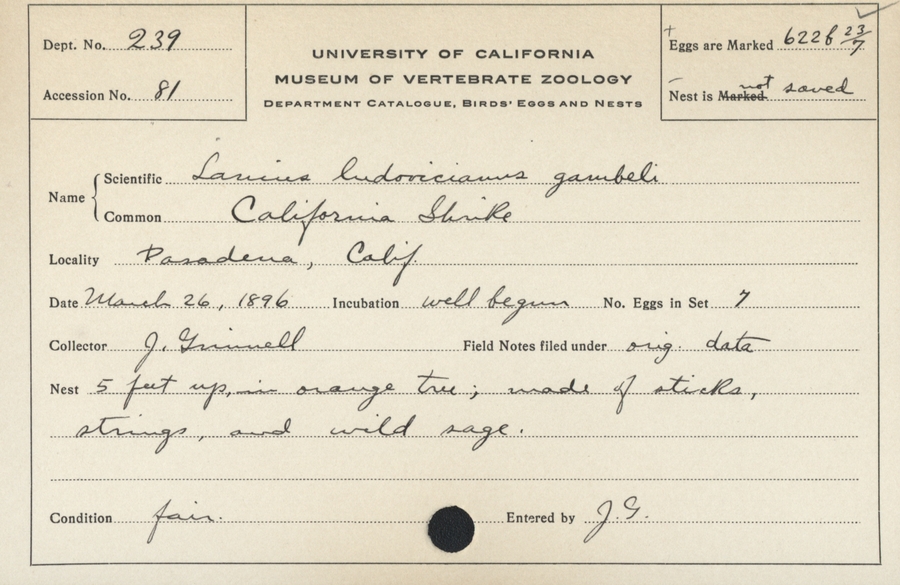 Dept. No. 239
Accession No. 81
UNIVERSITY OF CALIFORNIA
MUSEUM OF VERTEBRATE ZOOLOGY
DEPARTMENT CATALOGUE, BIRDS' EGGS AND NESTS
+
Eggs are Marked 622b 23/7
Nest is Marked not saved
Name { Scientific Lanius ludovicianus gambeli
Common California Shrike
Locality Pasadena, Calif
Date March 26, 1896 Incubation well begun No. Eggs in Set 7
Collector J. Grinnell Field Notes filed under orig. data
Nest 5 feet up, in orange tree; made of sticks,
strings, and wild sage.
Condition fair. Entered by J.G.